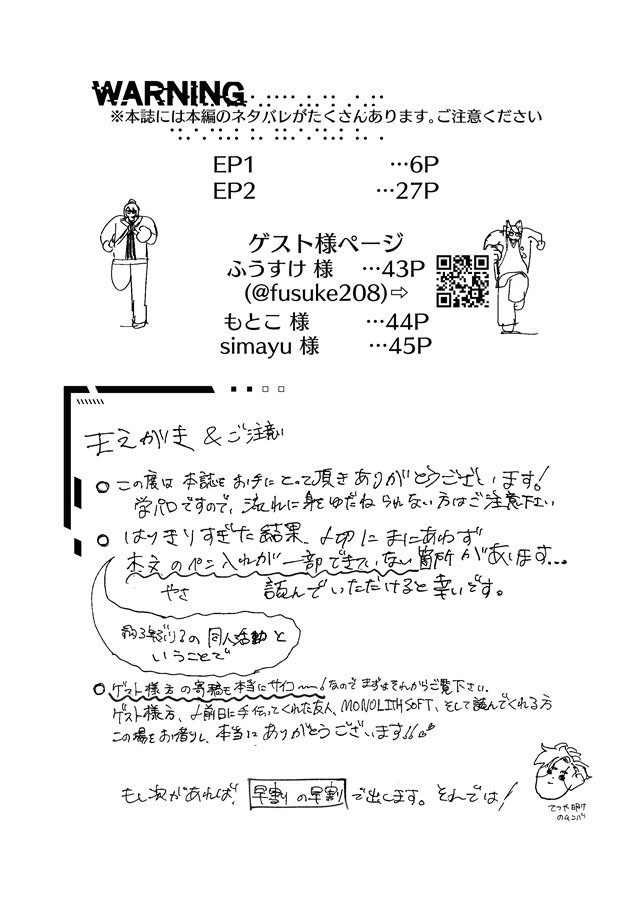 WARNING
※本誌には本編のネタバレがたくさんあります。ご注意ください
EP1 …6P
EP2 …27P
ゲスト様ページ
ふうすけ 様 …43P
(@fusuke208)⇨
もとこ 様 …44P
simayu 様 …45P
まえがき & ご注意
この度は 本誌をお手にとって頂きありがとうございます!
学パロですので、流れに身をゆだねられない方はご注意下さい
はりきりすぎた結果、〆切にまにあわず
本文のペン入れが一部できていない箇所があります…
読んでいただけると幸いです。
約3年ぶりの同人活動と
いうことで
ゲスト様方の寄稿も本当にサイコ〜!なので まずはそれからご覧下さい.
ゲスト様方、〆前日に手伝ってくれた友人、MONOLITHSOFT、そして読んでくれる方
この場をお借りし、本当にありがとうございます!!
もし次があれば、早割の早割で出します。それでは!
てつや明け